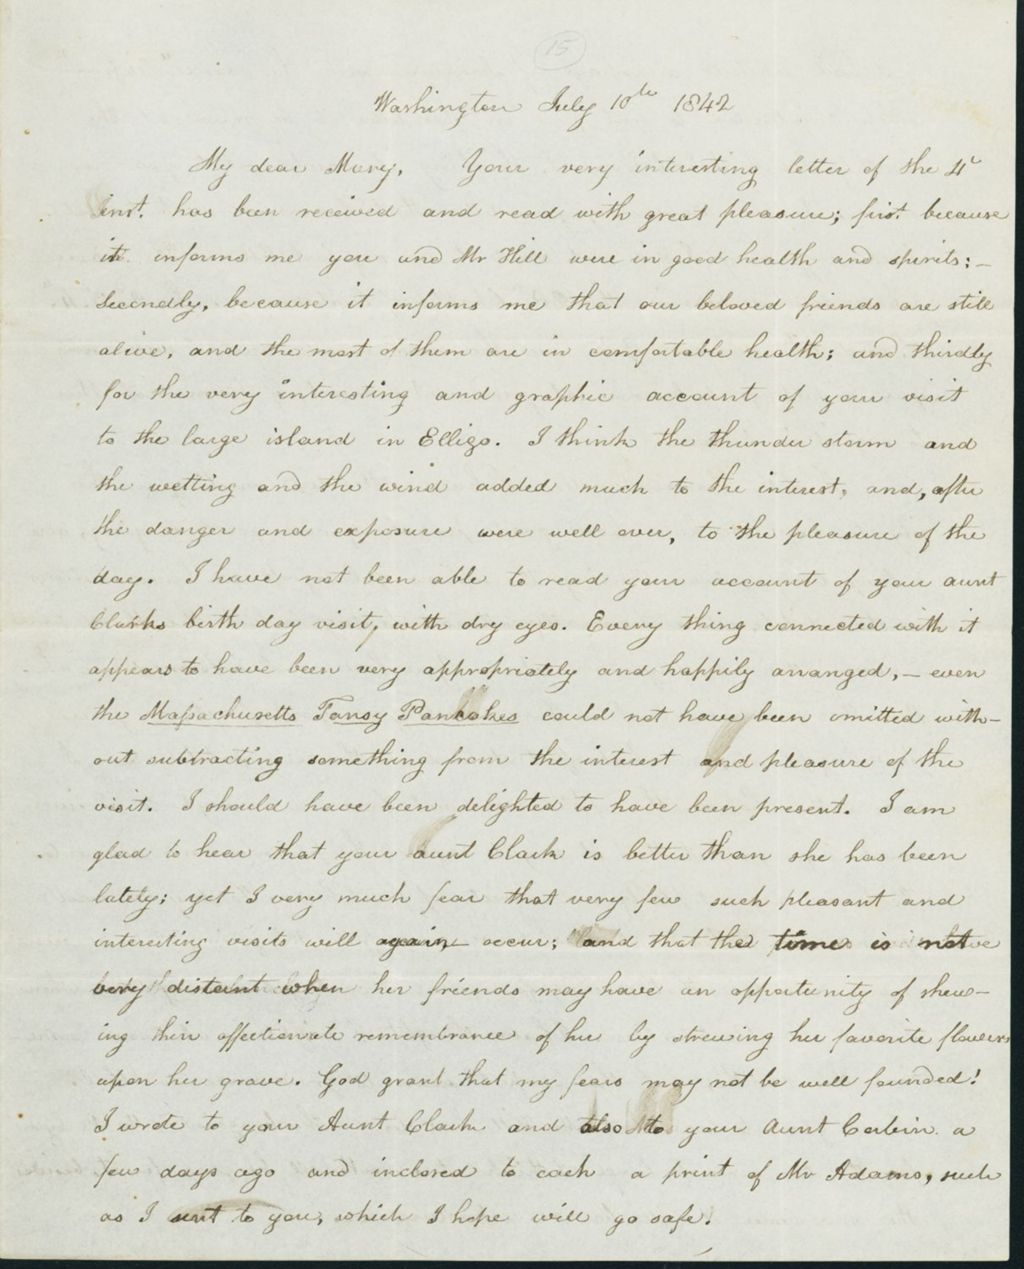 15
Washington July 10th 1842
My dear Mary, Your very interesting letter of the 4th
inst. has been received and read with great pleasure; first because
it informs me you and Mr Hill were in good health and spirits; —
Secondly, because it informs me that our beloved friends are still
alive, and the most of them are in comfortable health; and thirdly
for the very interesting and graphic account of your visit
to the large island in Elligo. I think the thunder storm and
the wetting and the wind added much to the interest, and, after
the danger and exposure were well over, to the pleasure of the
day. I have not been able to read your account of your aunt
Clarks birth day visit, with dry eyes. Every thing connected with it
appears to have been very appropriately and happily arranged, — even
the Massachusetts Tansy Pancakes could not have been omitted with-
out subtracting something from the interest and pleasure of the
visit. I should have been delighted to have been present. I am
glad to hear that your aunt Clark is better than she has been
lately; yet I very much fear that very few such pleasant and
interesting visits will again occur; and that the time is not
very distant when her friends may have an opportunity of shew-
ing their affectionate remembrance of her by strewing her favorite flowers
upon her grave. God grant that my fears may not be well founded!
I wrote to your Aunt Clark and also to your Aunt Corbin a
few days ago and inclosed to each a print of Mr Adams, such
as I sent to you, which I hope will go safe.